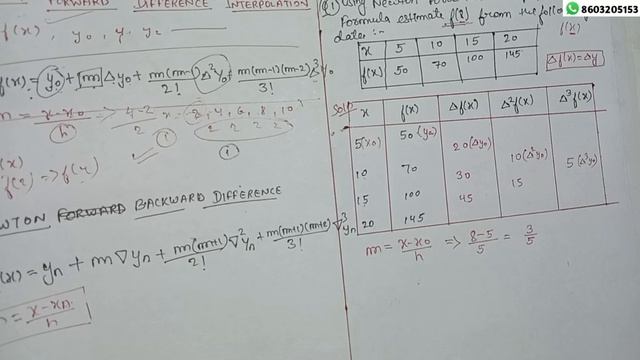 FORWARD DIFFERENCE INTERPOLATION
f(x), y₀, y₁, y₂
f(x) = y₀ + [m] Δy₀ + m(m-1)/2! Δ²y₀ + m(m-1)(m-2)/3! Δ³y₀
m = x-x₀/h => 4-2/2 x- 2, 4, 6, 8, 10
2 2 2 2
f(2) => f(4)
NEWTON FORWARD BACKWARD DIFFERENCE
f(x) = yn + m∇yn + m(m+1)/2! ∇²yn + m(m+1)(m+2)/3! ∇³yn
x-xn/h
8603205153
Q.1) Using Newton
Formula estimate f(8) from the
data :-
f(x)
x 5 10 15 20
f(x) 50 70 100 145
Δf(x) = Δy
Solⁿ
x f(x) Δf(x) Δ²f(x) Δ³f(x)
5(x₀) 50(y₀)
20(Δy₀)
10 70 10(Δ²y₀)
30 5(Δ³y₀)
15 100 15
45
20 145
m = x-x₀/h => 8-5/5 = 3/5